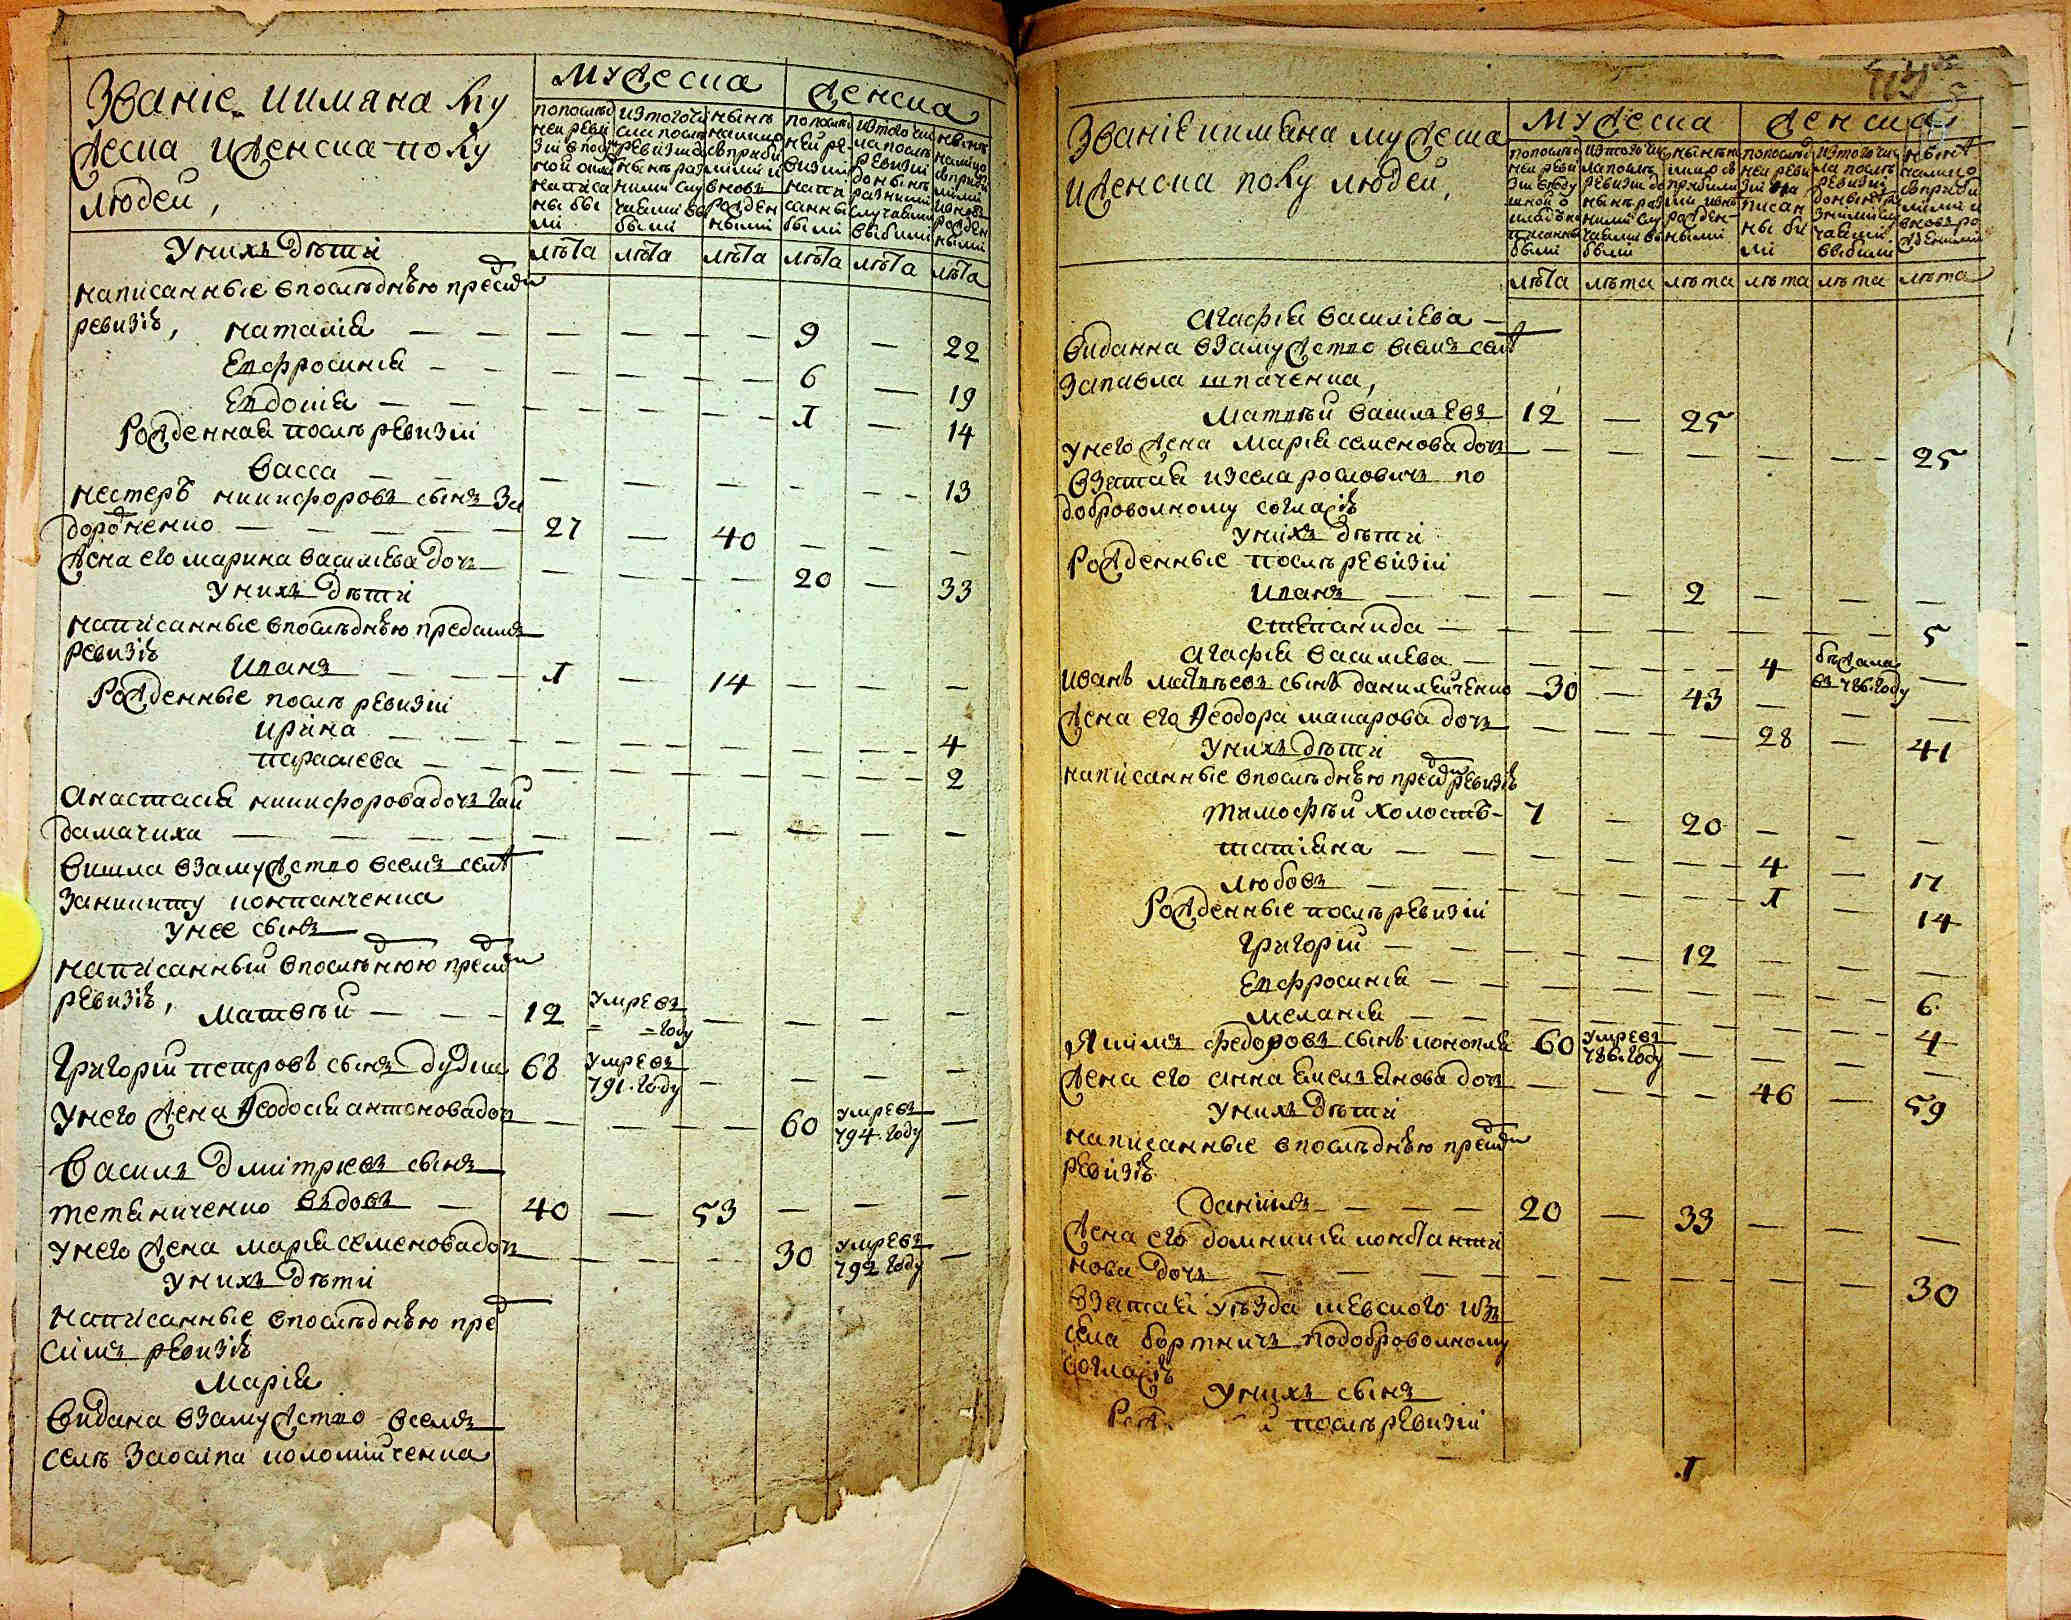 Званіе иимяна му
жеска иженска полу
людей,
мужеска
женска
попослѣд
ней реви
зіи вподу
шной окла
написа
ны бы
ли
изтогочи
сла послѣ
ревизіи до
нынѣ раз
ними слу
чаями вы
были
нынѣ
налицо
сприбы
лыми и
вновь
рожден
ными
попослѣд
ней ре-
визіи
напи
санны
были
изтого чис
ла послѣ
ревизіи
донынѣ
разними
случаями
выбыли
нынѣ
налицо
сприбы
лыми
ивновь
рожден
ными
лѣта лѣта лѣта лѣта лѣта лѣта
Унихъ дѣти
написанные впослѣднѣю пред сим
ревизіѣ, Наталія — — 9 — 22
Евфросинія — — 6 — 19
Евдокія — — 1 — 14
Рожденная послѣ ревизіи
Васса — — 13
Нестеръ никифоровъ сынъ За
дорожненко — 27 — 40 — — —
Жена его марина василіева дочь — 20 — 33
Унихъ дѣти
написанные впослѣднѣю предсимъ
ревизіѣ Иванъ — 1 — 14 — — —
Рожденные послѣ ревизіи
Ирина — — 4
Параскева — — 2
Анастасія никифорова дочь гай
дамачиха — — — — — —
вишла взамужство всемъ селѣ
за никиту
унее сынъ
написанный впослѣнюю пред сим
ревизіѣ, Матвѣй — 12 умре въ
= = году — — — —
Григорій петровъ сынъ дудка 68 умре въ
791. году — — — —
унего жена Феодосія антоновадоч — 60 умре въ
794. году —
Василь дмитріевъ сынъ
тетяниченко вдовъ — 40 — 53 — — —
унего жена марія семеновадоч — 30 умре въ
792 году —
унихъ дѣти
написанные впослѣднѣю пред
симъ ревизіѣ
Марія
видана взамужство всемъ
селѣ заосипа коломийченка
Званіе иимяна мужеска
иженска полу людей,
мужеска
женска
попослѣд
ней реви
зіи вподу
шной о
кладъ на
писанны
были
изтого чис
ла послѣ
ревизіи до
нынѣ раз
ними слу
чаями вы
были
нынѣ на
лицо съ
прибыли
ми ивнов
рожден-
ными
попослѣд
ней реви
зіи на
писан
ны бы
ли
изтого чис
ла послѣ
ревизіи
донынѣ ра
зними слу
чаями
выбыли
нынѣ
налицо
сприби
лыми и
вновь ро
жденными
лѣта лѣта лѣта лѣта лѣта лѣта
Агафія Василіева —
виданна взамужство всемъ селѣ
запавла шпаченка,
Матвѣй Васильевъ 12 — 25
унего жена Марія семенова дочь — 25
взятая изсела рословичь по
доброволному согласіѣ
унихъ дѣти
Рожденные послѣ ревизіи
Иванъ — — 2 — — —
Степанида — — 5
Агафія Василіева — — 4 бѣжала
въ 786. году —
Иванъ матвѣевъ сынъ данилейченко — 30 — 43 — — —
Жена его Феодора макарова дочь — 28 — 41
унихъ дѣти
написанные впослѣднѣю пред сим ревизіѣ
Тимофѣй холостъ — 7 — 20 — — —
Татіяна — — 4 — 17
Любовъ — — 1 — 14
Рожденные послѣ ревизіи
Григорій — — 12 — — —
Евфросинія — — 6
Меланія — — 4
Якимъ федоровъ сынъ конопля 60 умре въ
786. году — — — —
Жена его анна емельянова дочь — 46 — 59
унихъ дѣти
написанные впослѣднѣю пред сим
ревизіѣ
Даніилъ — — 20 — 33 — — —
Жена его домникия константи
нова дочь — — 30
взятая уѣзда киевского изъ
села бортничь подоброволному
согласіѣ
унихъ сынъ
Рож й послѣ ревизіи
1